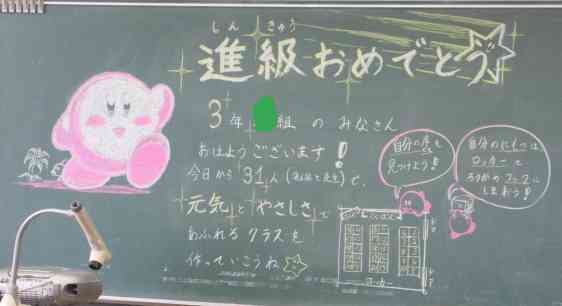 しん きゅう
進級おめでとう
3年 組 の みなさん
おはようございます!
今日から31人(私と先生)で、
元気とやさしさで
あふれる クラスを
作っていこうね
自分の席を
見つけよう!
自分のにもつは
ロッカーと
ろうかのフックに
しまおう!
こくばん
ロッカー